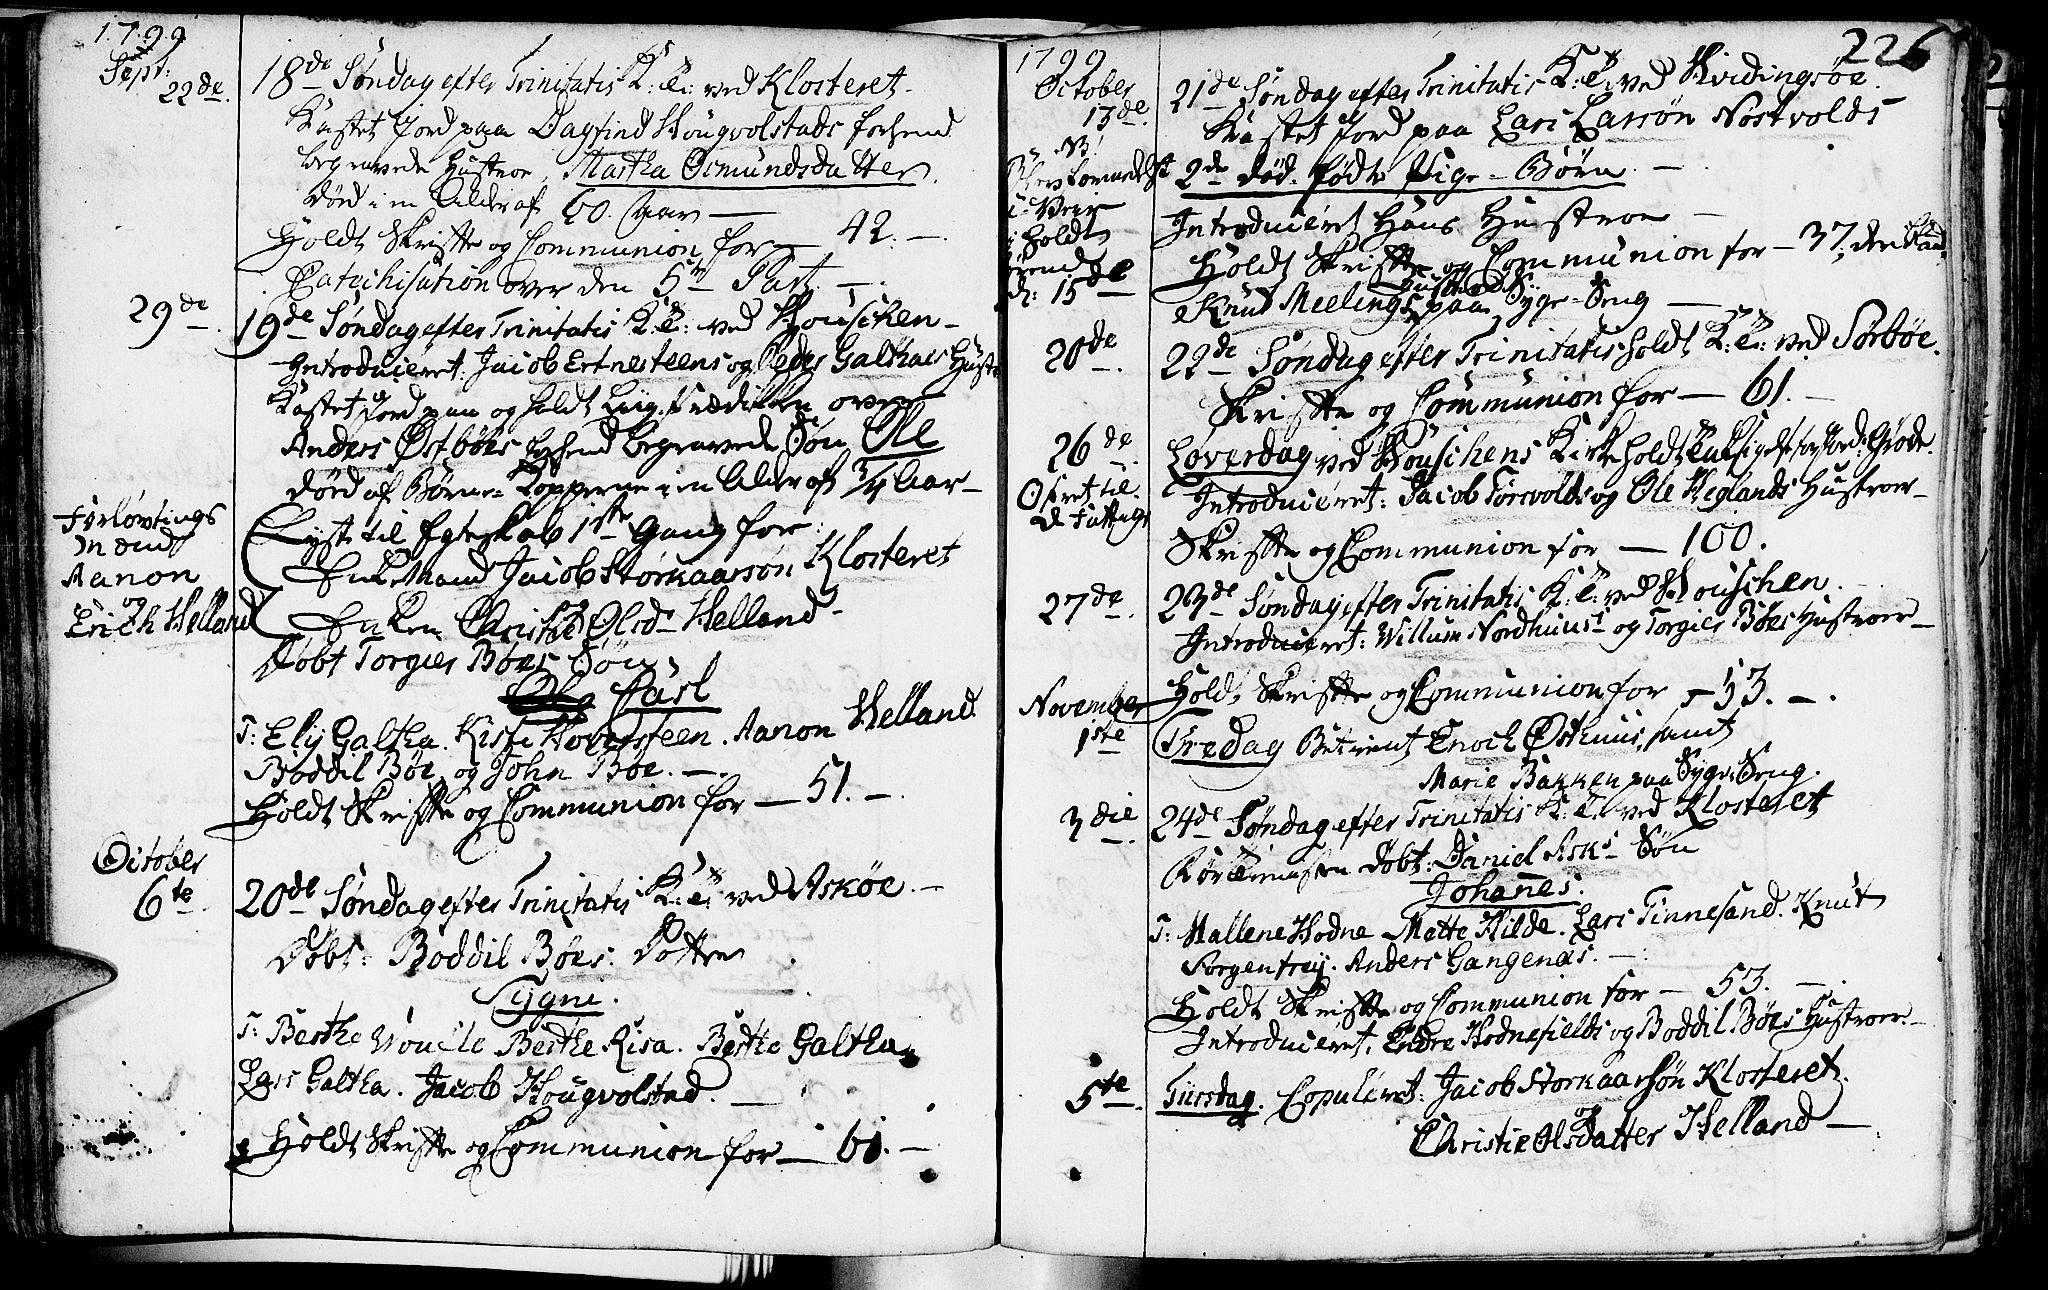 1799
Sept:
22de.
18de Søndag efter Trinitatis K: T: ved Klosteret.
Kastet Jord paa Dagfind Hougvolstads forhend
begravede Hustroe, Martha Osmundsdatter.
Død i en Alder af 60. Aar —
Holdt Skrifte og Communion for — 42. —.
Catechisation over den 5te Part. —.
29de.
19de Søndag efter Trinitatis K: T: ved Houschen —
Introducieret: Jacob Ertnesteens og Peder Galthaes Hustr
Kastet Jord paa og holdt Liig-Prædiken over
Anders Østbøes forhend begravede Søn Ole
død af Børne-Kopperne i en Alder af 3/4 Aar —
Forlovtings
Mænd
Aanon
og
Erich Helland
Lyst til Egteskab 1ste Gang for:
Enke Mand Jacob Storkaarsøn Klosteret
og
Enken Christie Olsd. Helland —
Døbt Torgies Bøes Søn
Carl
T: Elij Galtha. Kisti Hovdesteen. Aanon Helland.
Boddil Bøe og John Bøe. —.
Holdt Skrifte og Communion for — 51. —.
October
6te.
20de Søndag efter Trinitatis K: T: ved Askøe. —
Døbt: Boddil Bøes: Dotter
Sygni.
T: Berthe Wouile Berthe Risa. Berthe Galtha.
Lars Galtha. Jacob Hougvolstad. —
Holdt Skrifte og Communion for — 61. —
226
1799
October
13de.
21de Søndag efter Trinitatis K: T: ved Hvidingsøe.
Kastet Jord paa Lars Larsøn Nostvolds
2de død-fødte Pige-Børn. —.
Introducieret Hans Hustroe —
Holdt Skrifte og Communion for — 37, den
NB
i Veir
holdt
d: 15de
Knut Meelings Hustroe paa Syge-Seng —
20de.
22de Søndag efter Trinitatis holdt K: T: ved Sørbøe.
Skrifte og Communion for — 61. —
26de.
Ofret til
d Fattige
Løverdag ved Houschens Kirke holdt Taksigelse for Jord: Grøde.
Introducieret: Jacob Torsvolds og Ole Heglands Hustroer —
Skrifte og Communion for — 100.
27de.
23de Søndag efter Trinitatis K: T: ved Houschen.
Introducieret: Willum Nordhuus: og Torgies Bøes Hustroer —
Holdt Skrifte og Communion for — 53. —.
November
1ste
Fredag Betient Enoch Østhuus, samt
Marie Bakken paa Syge-Seng.
3die.
24de Søndag efter Trinitatis K: T: ved Klosteret
Før Tienesten Døbt: Daniel Asks Søn
Johanes.
T: Mallene Hodne Matte Hilde. Lars Finnesand. Knut
Sorgenfrey. Anders Gangenæs. —
Holdt Skrifte og Communion for — 53. —.
Introducieret, Endre Hodnefields og Boddil Bøes Hustroer. —
5te.
Tiirsdag. Copuleret: Jacob Storkaarsøn Klosteret.
og
Christie Olsdatter Helland —.